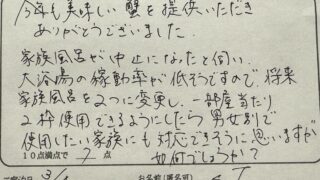 今年も美味しい蟹を提供いただき
ありがとうございました。
家族風呂が中止になったと伺い、
大浴場の稼動率が低そうですので将来
家族風呂を2つに変更し、一部屋当たり
2枠使用できるようにしたら男女別で
使用したい家族にも対応できそうに思いますが
如何でしょうか?
10点満点で 7 点
お名前(匿名可)